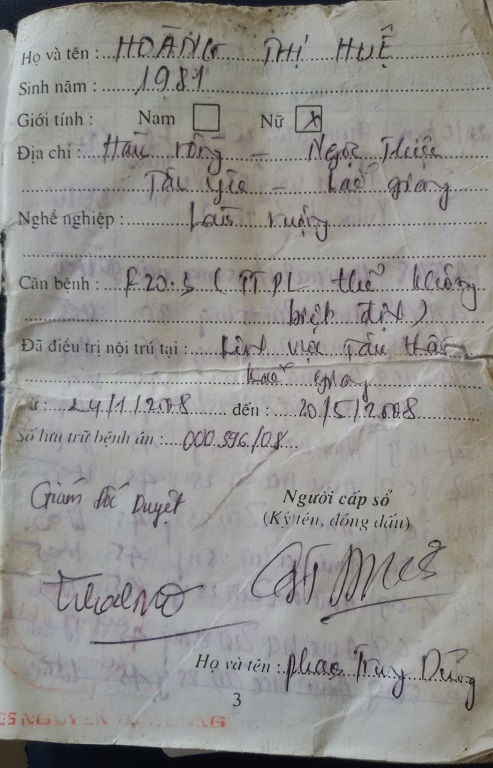 Họ và tên : HOÀNG THỊ HUỆ
Sinh năm : 1981
Giới tính : Nam Nữ X
Địa chỉ : - Ngọc Thiện
Tân Yên - Bắc giang
Nghề nghiệp : Làm ruộng
Căn bệnh : F20.3 (TTPL thể không
biệt định)
Đã điều trị nội trú tại : Bệnh viện Tâm thần
Bắc giang
Từ : 24/1/2008 đến : 20/5/2008
Số lưu trữ bệnh án : 000.596/08
Giám đốc Duyệt
Người cấp sổ
(Ký tên, đóng dấu)
Họ và tên : Trung Dũng
3